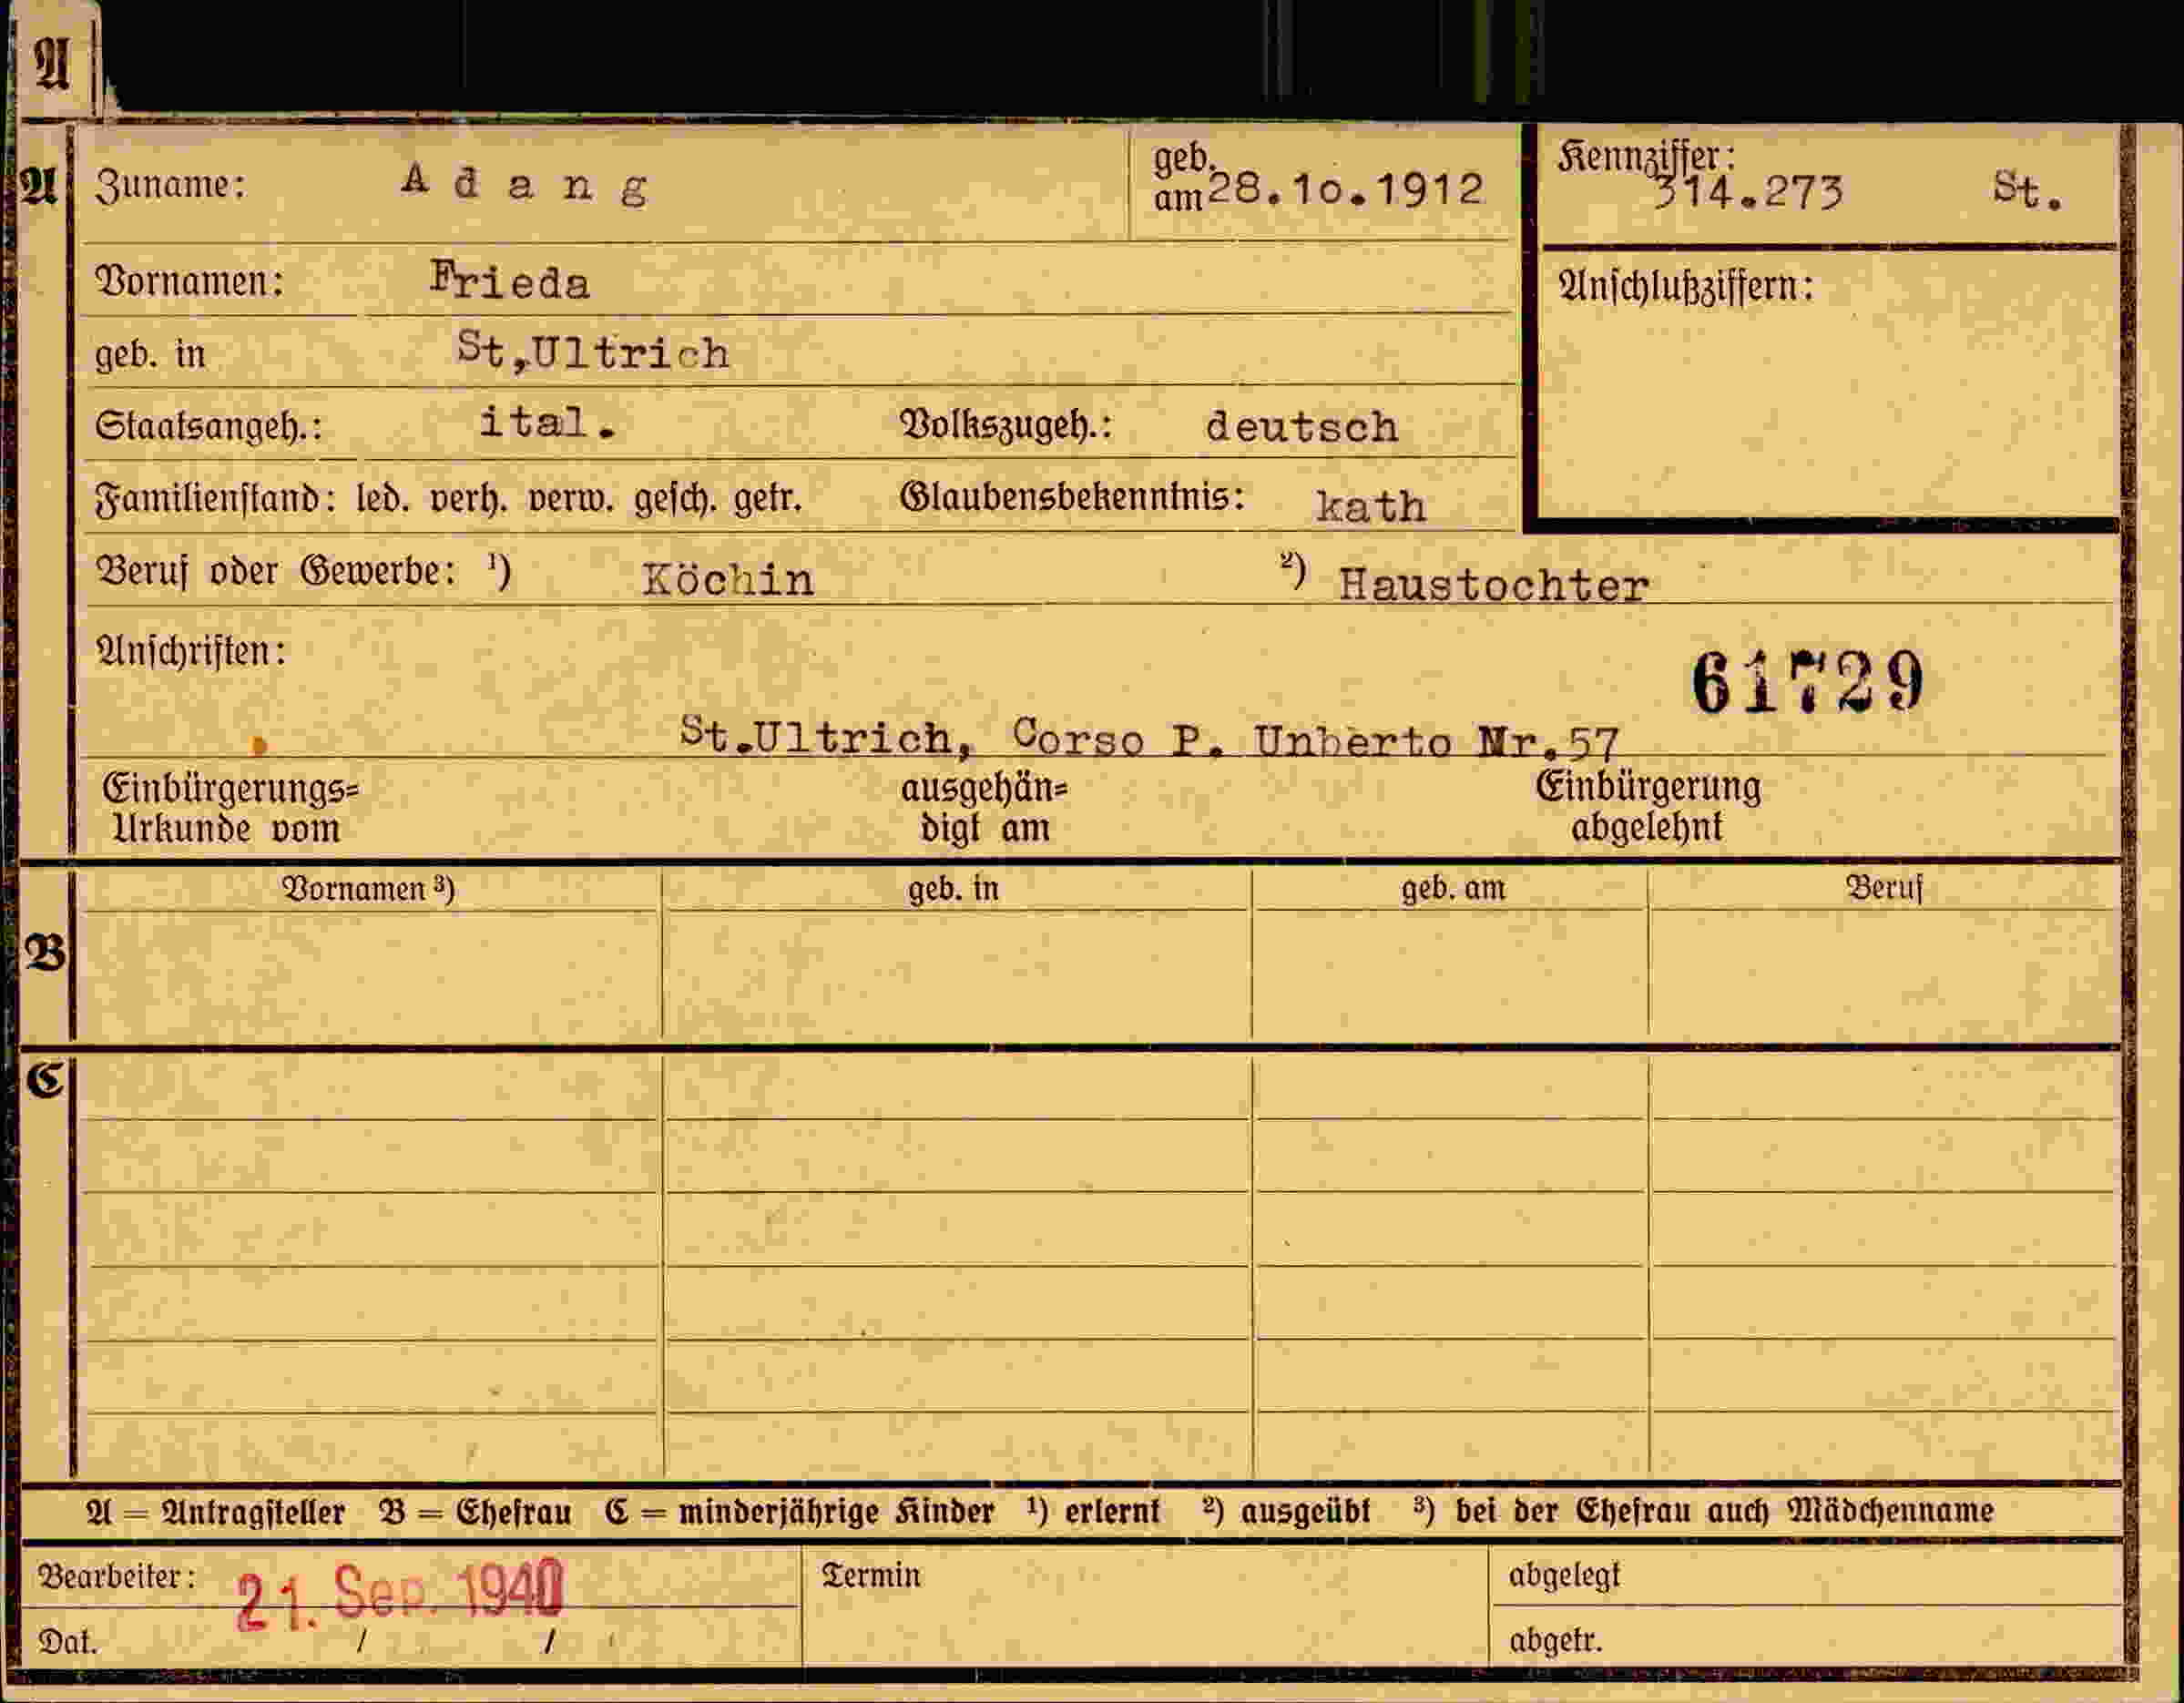 A
A Zuname: Adang geb. am 28.10.1912 Kennziffer: 314.273 St.
Vornamen: Frieda Anschlußziffern:
geb. in St,Ultrich
Staatsangeh.: ital. Volkszugeh.: deutsch
Familienstand: led. verh. verw. gesch. getr. Glaubensbekenntnis: kath
Beruf oder Gewerbe: ¹) Köchin ²) Haustochter
Anschriften:
61729
St.Ultrich, Corso P. Unberto Nr.57
Einbürgerungs= ausgehän= Einbürgerung
Urkunde vom digt am abgelehnt
Vornamen ³) geb. in geb. am Beruf
B
C
A = Antragsteller B = Ehefrau C = minderjährige Kinder ¹) erlernt ²) ausgeübt ³) bei der Ehefrau auch Mädchenname
Bearbeiter: 21. Sep. 1940 Termin abgelegt
Dat. / / abgetr.